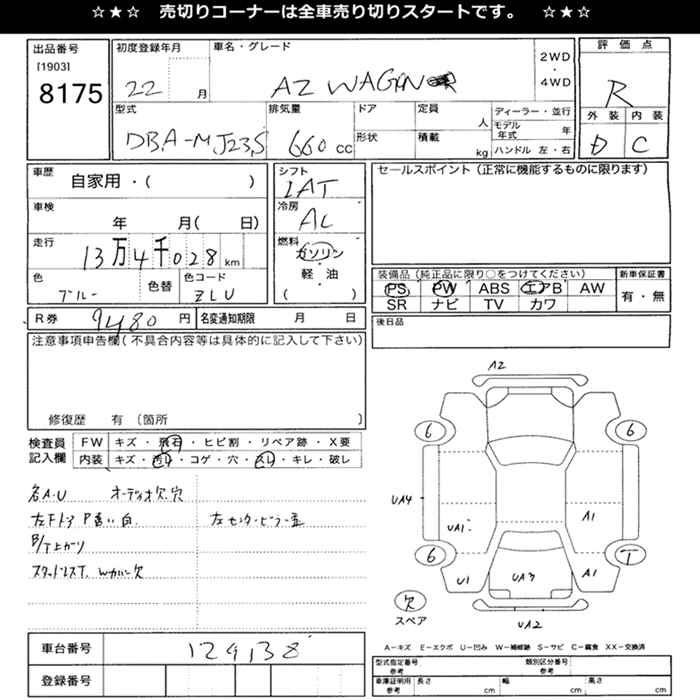 ☆★☆ 売切りコーナーは全車売り切りスタートです。 ☆★☆
出品番号
[1903]
8175
初度登録年月
22 月
車名・グレード
AZ WAGON
2WD
・
4WD
評価点
R
外装 内装
D C
型式
DBA-MJ23S
排気量
660 cc
ドア
形状
定員
人
積載
kg
ディーラー・並行
モデル年式 年
ハンドル 左・右
車歴
自家用・( )
車検
年 月( 日)
走行
13万4千028km
色
ブルー
色替
色コード
ZLU
シフト
IAT
冷房
AC
燃料
ガソリン
・
軽油
( )
セールスポイント(正常に機能するものに限ります)
装備品(純正品に限り○をつけてください)
PS PW ABS エアB AW
SR ナビ TV カワ
新車保証書
有・無
R券
9480円
名変通知期限 月 日
後日品
注意事項申告欄(不具合内容等は具体的に記入して下さい)
修復歴 有 〔箇所 〕
検査員
記入欄
FW キズ・飛石・ヒビ割・リペア跡・X要
内装 キズ・汚れ・コゲ・穴・スレ・キレ・破レ
各A・U オーディオ欠、穴
左Fドア P違い 白
左センターピラー歪
スタッドレスT、Wカバー欠
A2
6 6
UA4
UA1
A1
6 T
U1
UA3
A1
欠
スペア
UA2
A-キズ E-エクボ U-凹み W-補修跡 S-サビ C-腐食 XX-交換済
車台番号
124138
登録番号
型式指定番号
参考
類別区分番号
参考
車庫証明用
参考
長さ cm
幅 cm
高さ cm